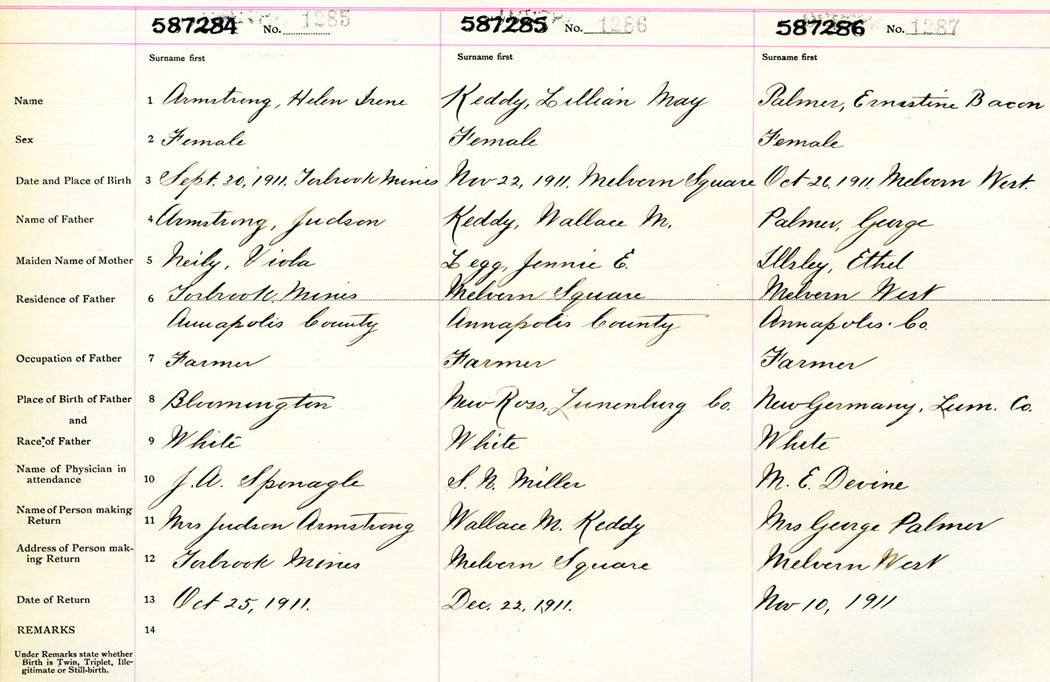 587284 No. 1285 587285 No. 1286 587286 No. 1287
Surname first Surname first Surname first
Name 1 Armstrong, Helen Irene Keddy, Lillian May Palmer, Ernestine Bacon
Sex 2 Female Female Female
Date and Place of Birth 3 Sept. 20, 1911. Torbrook Mines Nov 22, 1911. Melvern Square Oct 26, 1911 Melvern West.
Name of Father 4 Armstrong, Judson Keddy, Wallace M. Palmer, George
Maiden Name of Mother 5 Neily, Viola Legg, Jennie E. Illsley, Ethel
Residence of Father 6 Torbrook Mines Melvern Square Melvern West
Annapolis County Annapolis County Annapolis Co.
Occupation of Father 7 Farmer Farmer Farmer
Place of Birth of Father 8 Bloomington New Ross, Lunenburg Co. New Germany, Lum. Co.
and
Race of Father 9 White White White
Name of Physician in
attendance 10 J. A. Sponagle S. N. Miller M. E. Devine
Name of Person making
Return 11 Mrs Judson Armstrong Wallace M. Keddy Mrs George Palmer
Address of Person mak-
ing Return 12 Torbrook Mines Melvern Square Melvern West
Date of Return 13 Oct 25, 1911. Dec. 22, 1911. Nov 10, 1911
REMARKS 14
Under Remarks state whether
Birth is Twin, Triplet, Ille-
gitimate or Still-birth.